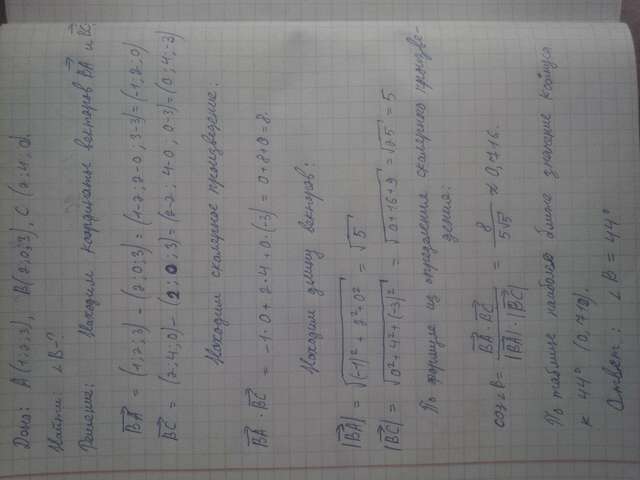 Дано: A(1;2;3), B(2;0;3), C(2;4;0).
Найти: ∠B-?
Решение: Находим координаты векторов BA и BC:
BA = (1;2;3) - (2;0;3) = (1-2; 2-0; 3-3) = (-1; 2; 0)
BC = (2;4;0) - (2;0;3) = (2-2; 4-0; 0-3) = (0; 4; -3)
Находим скалярное произведение:
BA · BC = -1·0 + 2·4 + 0·(-3) = 0+8+0 = 8.
Находим длину векторов:
|BA| = √(-1)²+2²+0² = √5
|BC| = √0²+4²+(-3)² = √0+16+9 = √25 = 5.
По формуле из определения скалярного произве-
дения:
cos∠B = BA·BC / |BA|·|BC| = 8 / 5√5 ≈ 0,716.
По таблице наиболее близко значение косинуса
к 44° (0,719).
Ответ: ∠B = 44°